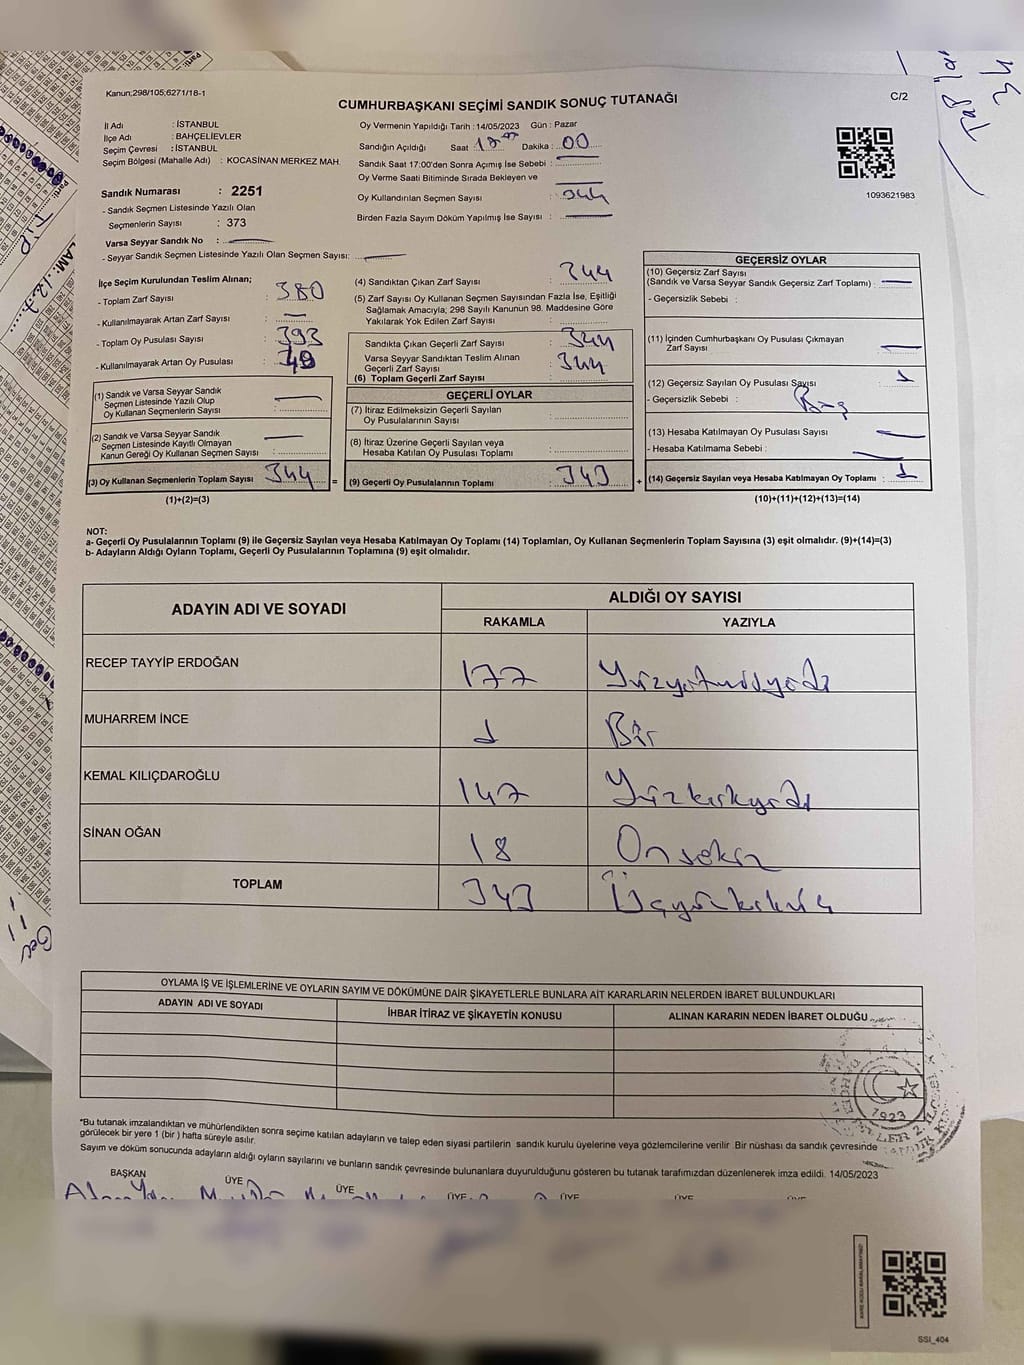 Kanun;298/105;6271/18-1
C/2
CUMHURBAŞKANI SEÇİMİ SANDIK SONUÇ TUTANAĞI
İl Adı : İSTANBUL
İlçe Adı : BAHÇELİEVLER
Seçim Çevresi : İSTANBUL
Seçim Bölgesi (Mahalle Adı) : KOCASİNAN MERKEZ MAH.
Sandık Numarası : 2251
- Sandık Seçmen Listesinde Yazılı Olan
Seçmenlerin Sayısı : 373
Varsa Seyyar Sandık No :
- Seyyar Sandık Seçmen Listesinde Yazılı Olan Seçmen Sayısı:
Oy Vermenin Yapıldığı Tarih : 14/05/2023 Gün : Pazar
Sandığın Açıldığı Saat Dakika : 00
Sandık Saat 17:00'den Sonra Açımış İse Sebebi :
Oy Verme Saati Bitiminde Sırada Bekleyen ve
Oy Kullandırılan Seçmen Sayısı : 344
Birden Fazla Sayım Döküm Yapılmış İse Sayısı :
1093621983
İlçe Seçim Kurulundan Teslim Alınan;
- Toplam Zarf Sayısı : 380
- Kullanılmayarak Artan Zarf Sayısı :
- Toplam Oy Pusulası Sayısı : 393
- Kullanılmayarak Artan Oy Pusulası : 49
(1) Sandık ve Varsa Seyyar Sandık
Seçmen Listesinde Yazılı Olup
Oy Kullanan Seçmenlerin Sayısı :
(2) Sandık ve Varsa Seyyar Sandık
Seçmen Listesinde Kayıtlı Olmayan
Kanun Gereği Oy Kullanan Seçmen Sayısı :
(3) Oy Kullanan Seçmenlerin Toplam Sayısı 344
(1)+(2)=(3)
(4) Sandıktan Çıkan Zarf Sayısı : 344
(5) Zarf Sayısı Oy Kullanan Seçmen Sayısından Fazla İse, Eşitliği
Sağlamak Amacıyla; 298 Sayılı Kanunun 98. Maddesine Göre
Yakılarak Yok Edilen Zarf Sayısı :
Sandıkta Çıkan Geçerli Zarf Sayısı : 344
Varsa Seyyar Sandıktan Teslim Alınan
Geçerli Zarf Sayısı : 344
(6) Toplam Geçerli Zarf Sayısı
GEÇERLİ OYLAR
(7) İtiraz Edilmeksizin Geçerli Sayılan
Oy Pusulalarının Sayısı :
(8) İtiraz Üzerine Geçerli Sayılan veya
Hesaba Katılan Oy Pusulalarının Toplamı :
= (9) Geçerli Oy Pusulalarının Toplamı : 343 +
GEÇERSİZ OYLAR
(10) Geçersiz Zarf Sayısı
(Sandık ve Varsa Seyyar Sandık Geçersiz Zarf Toplamı) :
- Geçersizlik Sebebi :
(11) İçinden Cumhurbaşkanı Oy Pusulası Çıkmayan
Zarf Sayısı
(12) Geçersiz Sayılan Oy Pusulası Sayısı 1
- Geçersizlik Sebebi :
(13) Hesaba Katılmayan Oy Pusulası Sayısı
- Hesaba Katılmama Sebebi :
(14) Geçersiz Sayılan veya Hesaba Katılmayan Oy Toplamı : 1
(10)+(11)+(12)+(13)=(14)
NOT:
a- Geçerli Oy Pusulalarının Toplamı (9) ile Geçersiz Sayılan veya Hesaba Katılmayan Oy Toplamı (14) Toplamları, Oy Kullanan Seçmenlerin Toplam Sayısına (3) eşit olmalıdır. (9)+(14)=(3)
b- Adayların Aldığı Oyların Toplamı, Geçerli Oy Pusulalarının Toplamına (9) eşit olmalıdır.
ADAYIN ADI VE SOYADI
ALDIĞI OY SAYISI
RAKAMLA YAZIYLA
RECEP TAYYİP ERDOĞAN 177 Yüzyetmişyedi
MUHARREM İNCE 1 Bir
KEMAL KILIÇDAROĞLU 147 Yüzkırkyedi
SİNAN OĞAN 18 Onsekiz
TOPLAM 343 Üçyüzkırküç
OYLAMA İŞ VE İŞLEMLERİNE VE OYLARIN SAYIM VE DÖKÜMÜNE DAİR ŞİKAYETLERLE BUNLARA AİT KARARLARIN NELERDEN İBARET BULUNDUKLARI
ADAYIN ADI VE SOYADI İHBAR İTİRAZ VE ŞİKAYETİN KONUSU ALINAN KARARIN NEDEN İBARET OLDUĞU
1923
*Bu tutanak imzalandıktan ve mühürlendikten sonra seçime katılan adayların ve talep eden siyasi partilerin sandık kurulu üyelerine veya gözlemcilerine verilir. Bir nüshası da sandık çevresinde
görülecek bir yere 1 (bir ) hafta süreyle asılır.
Sayım ve döküm sonucunda adayların aldığı oyların sayılarını ve bunların sandık çevresinde bulunanlara duyurulduğunu gösteren bu tutanak tarafımızdan düzenlenerek imza edildi. 14/05/2023
BAŞKAN ÜYE ÜYE ÜYE ÜYE ÜYE ÜYE
SSI_404